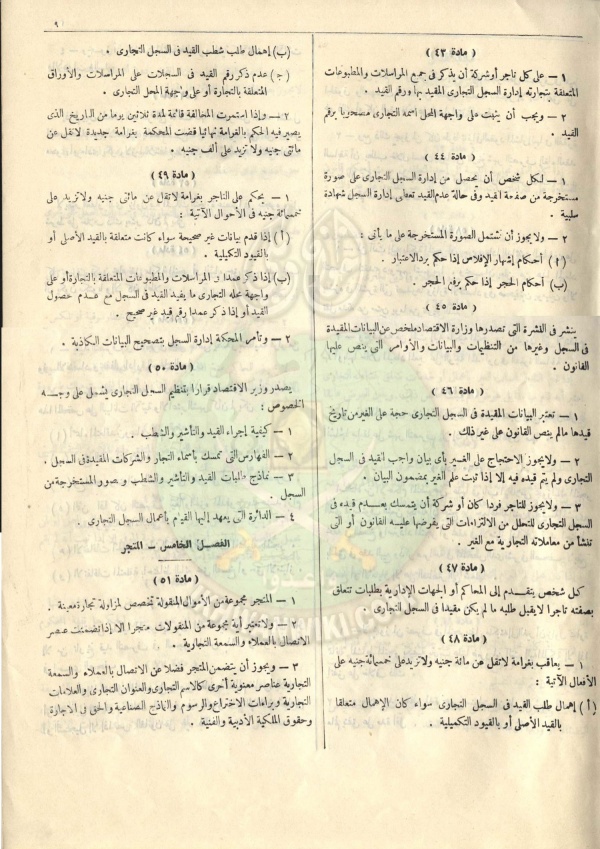 ٩
( مادة ٤٣ )
١ — على كل تاجر أو شركة أن يذكر فى جميع المراسلات والمطبوعات
المتعلقة بتجارته إدارة السجل التجارى المقيد بها ورقم القيد .
٢ — ويجب أن يثبت على واجهة المحل اسمه التجارى مصحوبا برقم
القيد .
( مادة ٤٤ )
١ — لكل شخص أن يحصل من إدارة السجل التجارى على صورة
مستخرجة من صفحة القيد وفى حالة عدم القيد تعطى إدارة السجل شهادة
سلبية .
٢ — ولا يجوز أن تشتمل الصورة المستخرجة على ما يأتى :
( ا ) أحكام إشهار الإفلاس إذا حكم برد الاعتبار .
(ب) أحكام الحجر إذا حكم برفع الحجر .
( مادة ٤٥ )
ينشر فى النشرة التى تصدرها وزارة الاقتصاد ملخص عن البيانات المقيدة
فى السجل وغيرها من التنظيمات والبيانات والأوامر التى ينص عليها
القانون .
( مادة ٤٦ )
١ — تعتبر البيانات المقيدة فى السجل التجارى حجة على الغير من تاريخ
قيدها مالم ينص القانون على غير ذلك .
٢ — ولا يجوز الاحتجاج على الغير بأى بيان واجب القيد فى السجل
التجارى ولم يتم قيده فيه إلا إذا ثبت علم الغير بمضمون البيان .
٣ — ولا يجوز للتاجر فردا كان أو شركة أن يتمسك بعدم قيده فى
السجل التجارى للتحلل من الالتزامات التى يفرضها عليه القانون أو التى
تنشأ من معاملاته التجارية مع الغير .
( مادة ٤٧ )
كل شخص يتقدم إلى المحاكم أو الجهات الإدارية بطلبات تتعلق
بصفته تاجرا لا يقبل طلبه ما لم يكن مقيدا فى السجل التجارى .
( مادة ٤٨ )
١ — يعاقب بغرامة لا تقل عن مائة جنيه ولا تزيد على خمسمائة جنيه على
الأفعال الآتية :
( أ ) إهمال طلب القيد فى السجل التجارى سواء كان الإهمال متعلقا
بالقيد الأصلى أو بالقيود التكميلية .
(ب) إهمال طلب شطب القيد فى السجل التجارى .
( ج ) عدم ذكر رقم القيد فى السجلات على المراسلات والأوراق
المتعلقة بالتجارة أو على واجهة المحل التجارى .
٢ — وإذا استمرت المخالفة قائمة لمدة ثلاثين يوما من التاريخ الذى
يصير فيه الحكم بالغرامة نهائيا قضت المحكمة بغرامة جديدة لا تقل عن
مائتى جنيه ولا تزيد على ألف جنيه .
( مادة ٤٩ )
١ — يحكم على التاجر بغرامة لا تقل عن مائتى جنيه ولا تزيد على
خمسمائة جنيه فى الأحوال الآتية :
( أ ) إذا قدم بيانات غير صحيحة سواء كانت متعلقة بالقيد الأصلى أو
بالقيود التكميلية .
(ب) إذا ذكر عمدا فى المراسلات والمطبوعات المتعلقة بالتجارة أو على
واجهة محله التجارى ما يفيد القيد فى السجل مع عدم حصول
القيد أو إذا ذكر عمدا رقم قيد غير صحيح .
٢ — وتأمر المحكمة إدارة السجل بتصحيح البيانات الكاذبة .
( مادة ٥٠ )
يصدر وزير الاقتصاد قرارا بتنظيم السجل التجارى يشمل على وجه
الخصوص :
١ — كيفية إجراء القيد والتأشير والشطب .
٢ — الفهارس التى تمسك بأسماء التجار والشركات المقيدة فى السجل .
٣ — نماذج طلبات القيد والتأشير والشطب وصور المستخرجة من
السجل .
٤ — الدائرة التى يعهد إليها القيام بأعمال السجل التجارى .
الفصل الخامس — المتجر
( مادة ٥١ )
١ — المتجر مجموعة من الأموال المنقولة تخصص لمزاولة تجارة معينة .
٢ — ولا تعتبر أية مجموعة من المنقولات متجرا إلا إذا تضمنت عنصر
الاتصال بالعملاء والسمعة التجارية .
٣ — ويجوز أن يتضمن المتجر فضلا عن الاتصال بالعملاء والسمعة
التجارية عناصر معنوية أخرى كالاسم التجارى والعنوان التجارى والعلامات
التجارية وبراءات الاختراع والرسوم والنماذج الصناعية والحق فى الاجارة
وحقوق الملكية الأدبية والفنية .